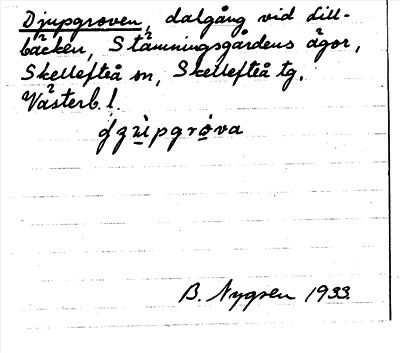 Djupgroven, dalgång vid Lill-
bäcken, Stämningsgårdens ägor,
Skellefteå sn, Skellefteå tg.
Västerb. l.
B. Nygren 1933.